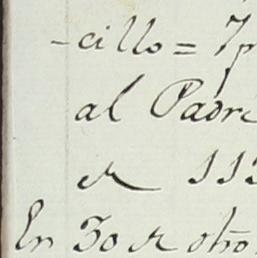 -cillo = 7p
al Padre
de 113
En 30 de otro